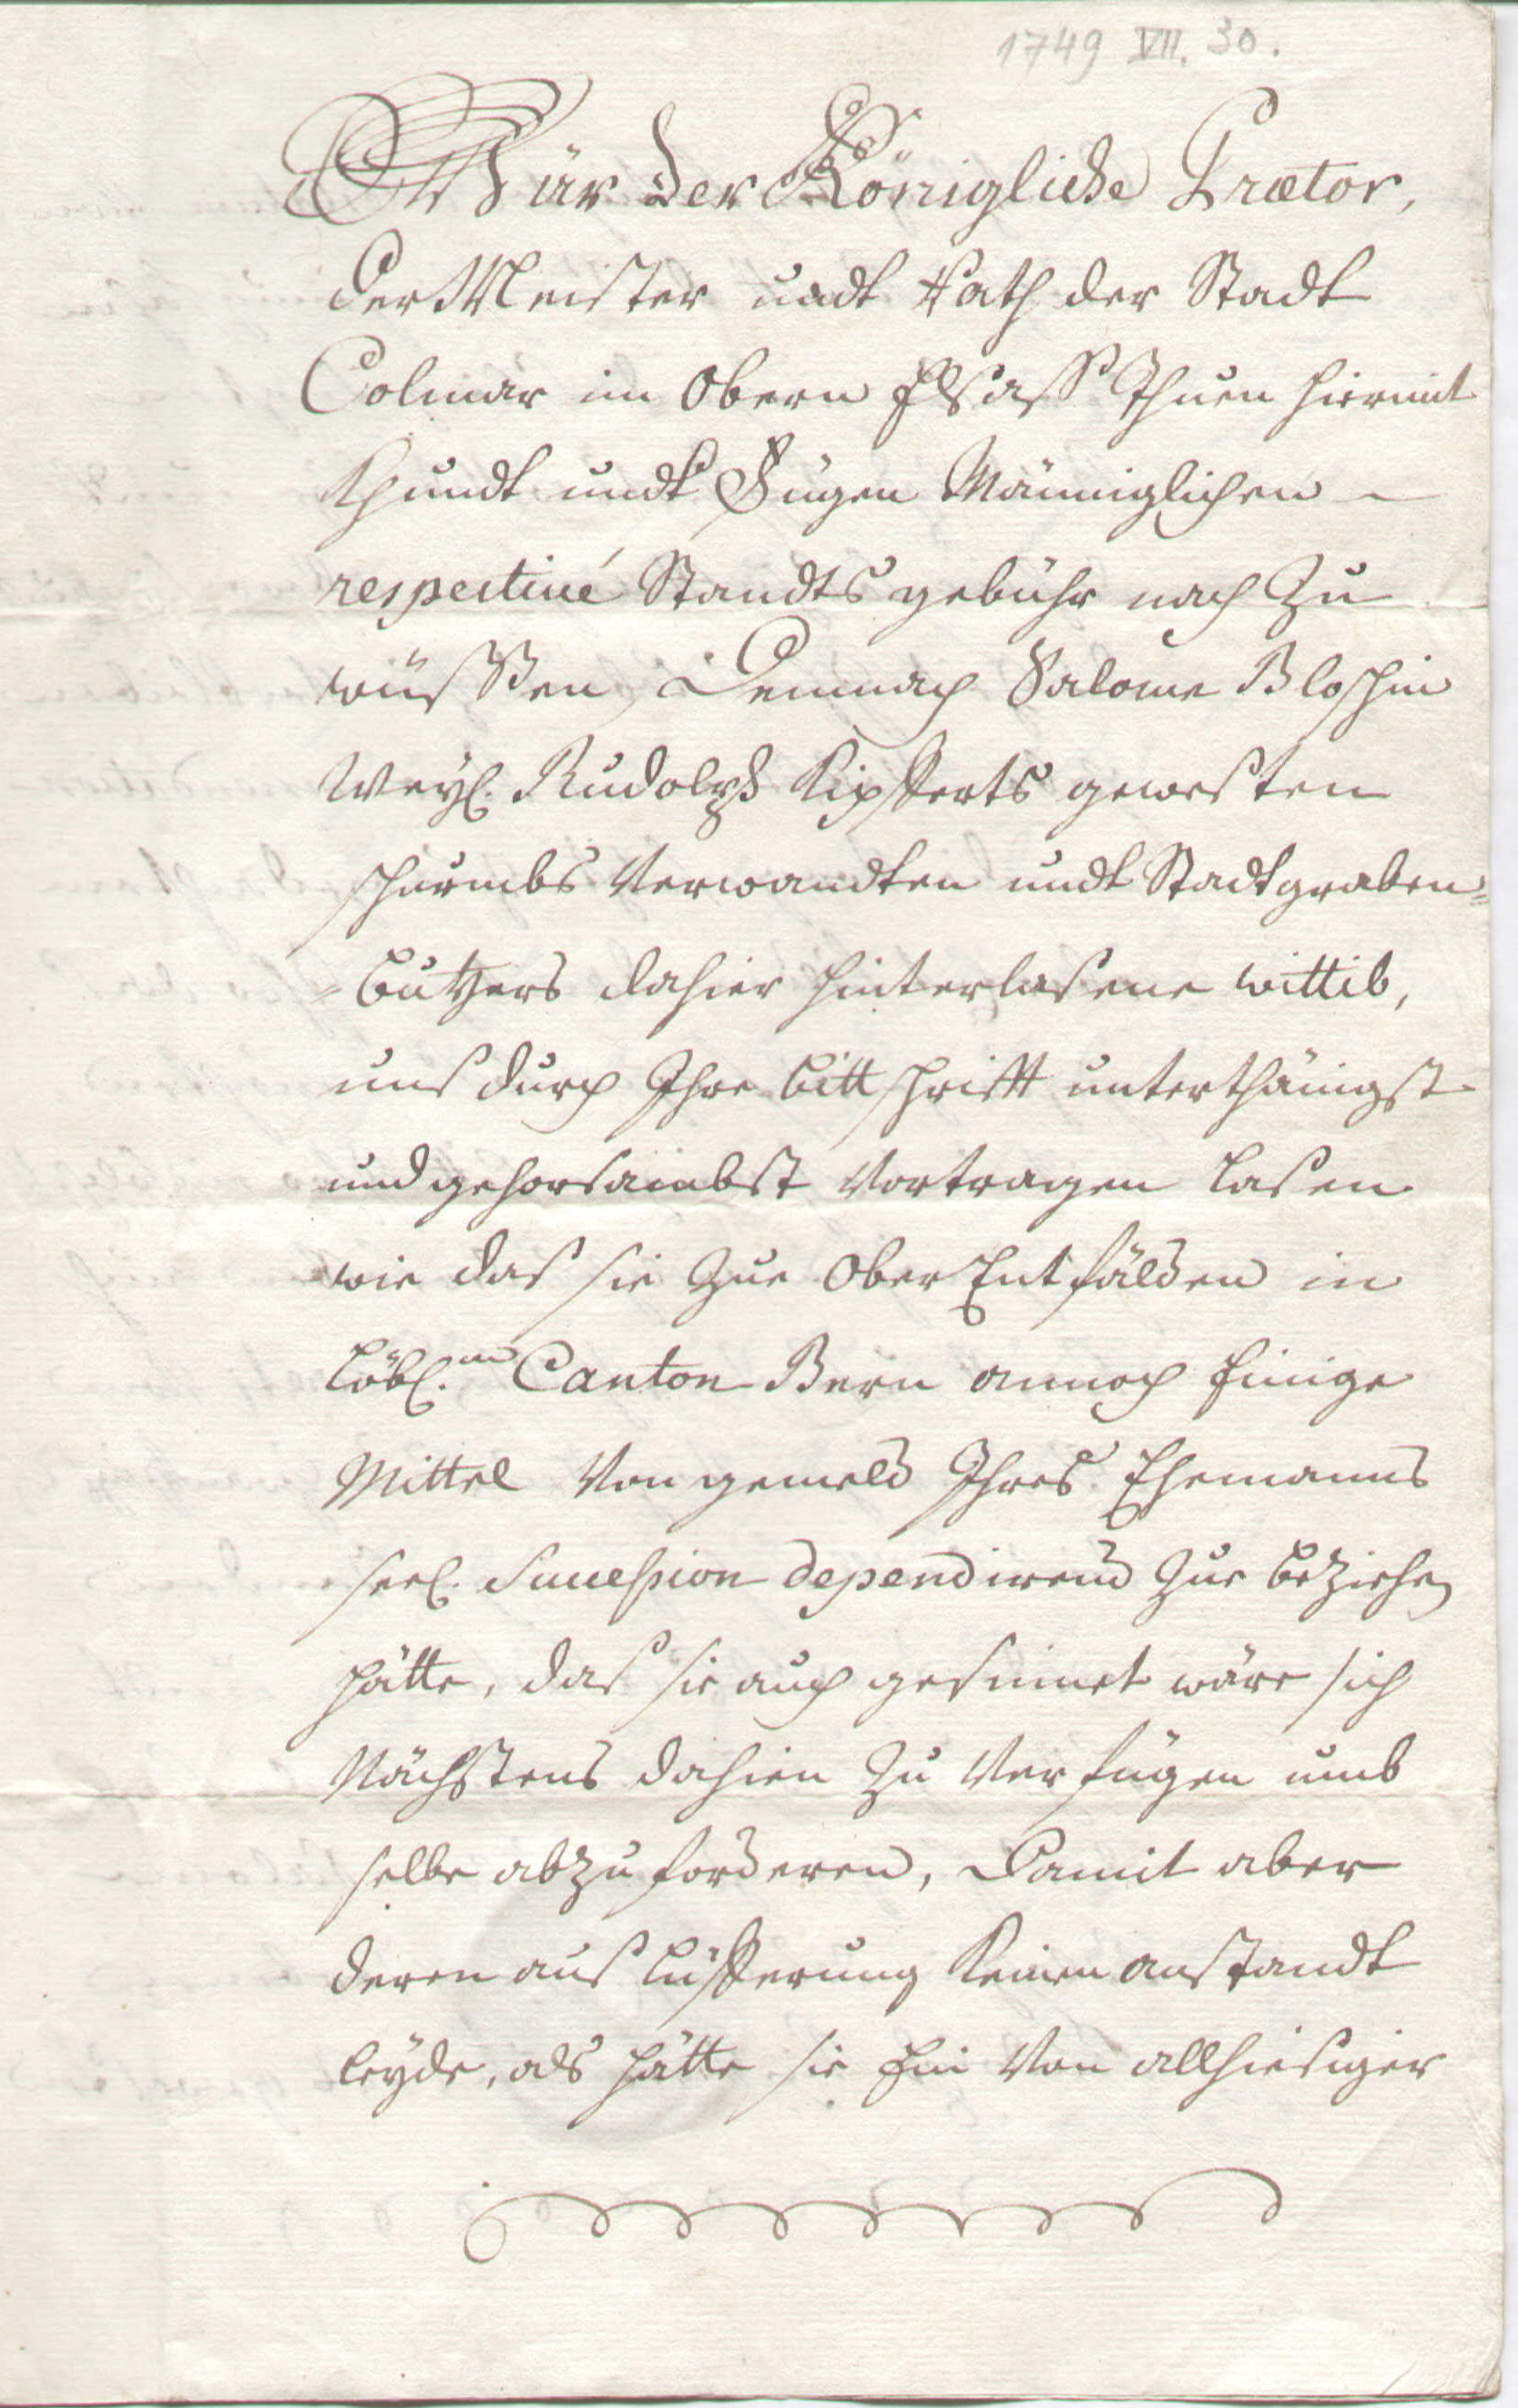 1749 VII. 30.
Wür der Königliche Prætor,
der Meister undt Rath der Stadt
Colmar im Obern Elsass Thuen hiermit
Khundt undt Fügen Männiglichen
respectivé Standts gebühr nach Zu
wüssen, Demnach Salome Bloshin
Weyl. Rudolph Kipfferts gewesten
schurmbs Verwandten undt Stadtgraben=
=butzers dahier hinterlasene wittib,
uns durch Ihre bittschrifft unterthänigst
und gehorsambst Vortragen lasen
wie das sie Zue Ober Entfälden in
Löbl.en Canton Bern annoch Einige
Mittel Von gemeld Ihres Ehemanns
seel. Succession dependirend Zue beziehen
hätte, das sie auch gesinnet wäre sich
Nächstens dahien Zu Verfügen umb
selbe abzuforderen, Damit aber
deren aus lüfferung Keinen anstandt
leyde, als hätte sie Ein Von allhiesiger